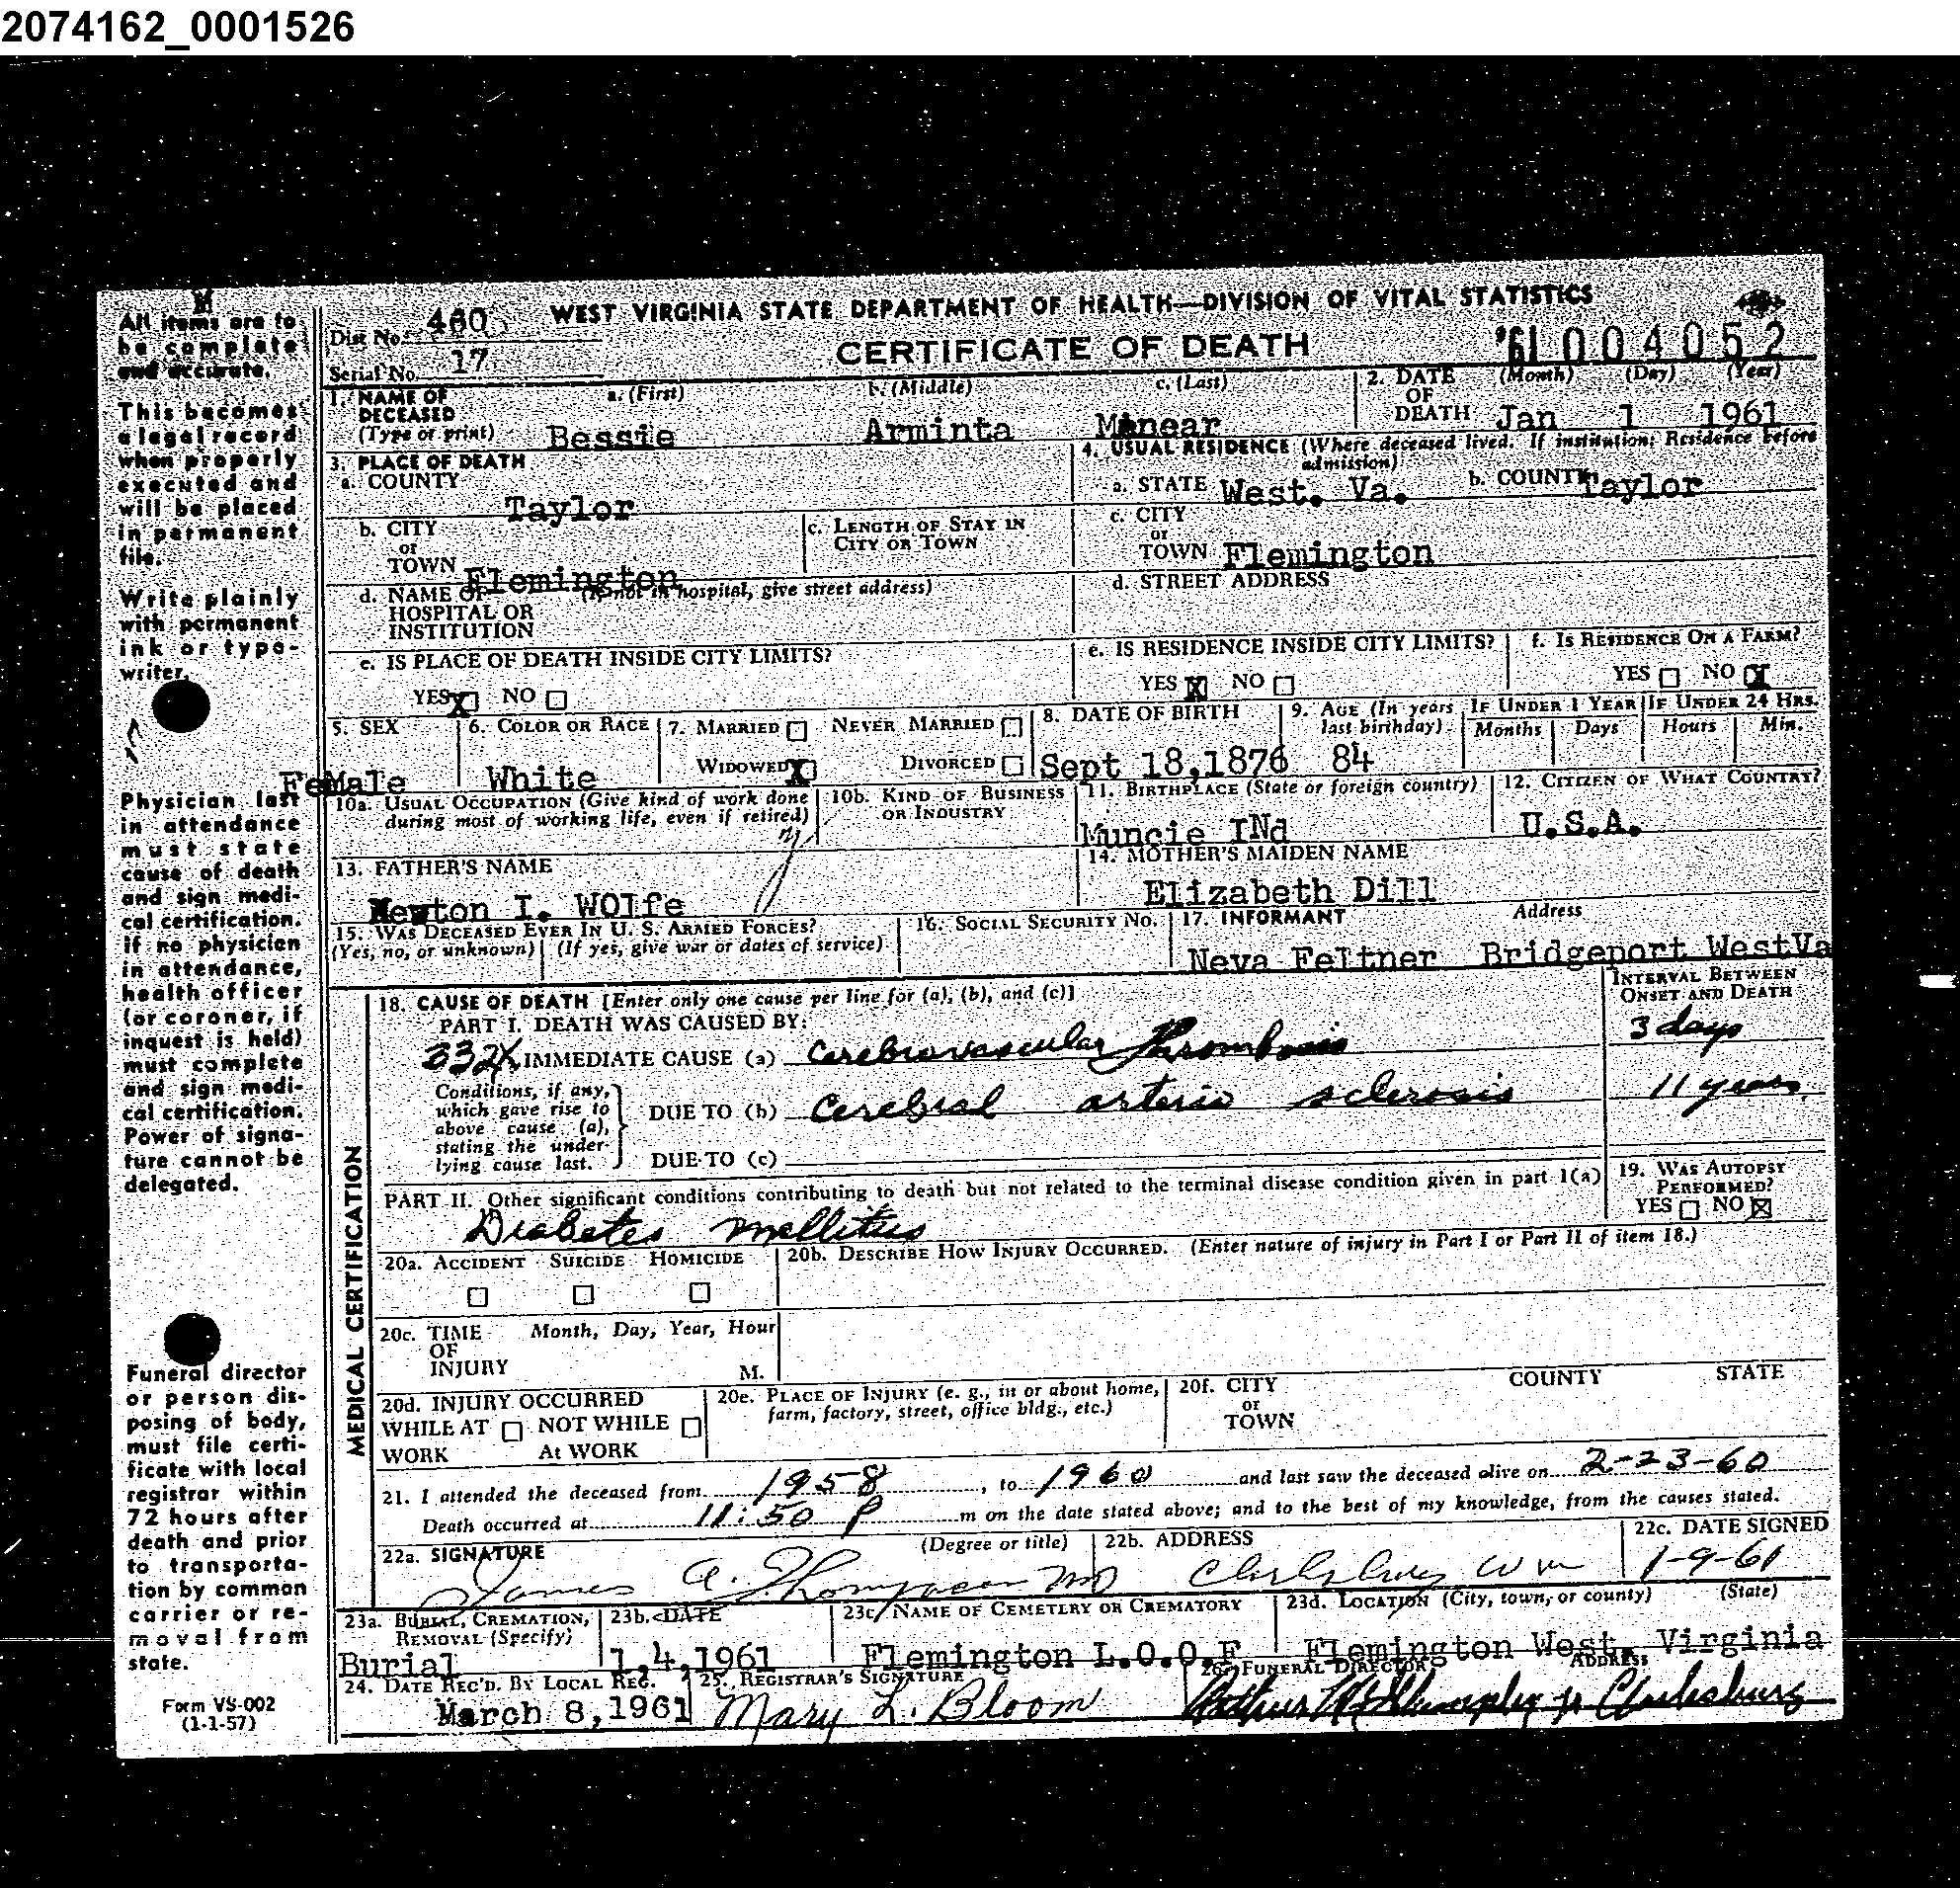 2074162_0001526
All items are to
be complete
and accurate.
This becomes
a legal record
when properly
executed and
will be placed
in permanent
file.
Write plainly
with permanent
ink or type-
writer.
Physician last
in attendance
must state
cause of death
and sign medi-
cal certification.
if no physician
in attendance,
health officer
(or coroner, if
inquest is held)
must complete
and sign medi-
cal certification.
Power of signa-
ture cannot be
delegated.
Funeral director
or person dis-
posing of body,
must file certi-
ficate with local
registrar within
72 hours after
death and prior
to transporta-
tion by common
carrier or re-
moval from
state.
Form VS-002
(1-1-57)
Dist No. 460 WEST VIRGINIA STATE DEPARTMENT OF HEALTH—DIVISION OF VITAL STATISTICS
Serial No. 17 CERTIFICATE OF DEATH '61 004052
1. NAME OF DECEASED (Type or print) a. (First) b. (Middle) c. (Last) 2. DATE OF DEATH (Month) (Day) (Year)
Bessie Arminta Minear Jan 1 1961
3. PLACE OF DEATH 4. USUAL RESIDENCE (Where deceased lived. If institution; Residence before admission)
a. COUNTY Taylor a. STATE West. Va. b. COUNTY Taylor
b. CITY or TOWN Flemington c. LENGTH OF STAY IN CITY OR TOWN c. CITY or TOWN Flemington
d. NAME OF HOSPITAL OR INSTITUTION (If not in hospital, give street address) d. STREET ADDRESS
e. IS PLACE OF DEATH INSIDE CITY LIMITS? e. IS RESIDENCE INSIDE CITY LIMITS? f. IS RESIDENCE ON A FARM?
YES X NO YES X NO YES NO X
5. SEX 6. COLOR OR RACE 7. MARRIED NEVER MARRIED 8. DATE OF BIRTH 9. AGE (In years last birthday) IF UNDER 1 YEAR IF UNDER 24 HRS.
Months Days Hours Min.
FeMale White WIDOWED X DIVORCED Sept 18,1876 84
10a. USUAL OCCUPATION (Give kind of work done during most of working life, even if retired) 10b. KIND OF BUSINESS OR INDUSTRY 11. BIRTHPLACE (State or foreign country) 12. CITIZEN OF WHAT COUNTRY?
Muncie INd U.S.A.
13. FATHER'S NAME 14. MOTHER'S MAIDEN NAME
Newton I. WOlfe Elizabeth Dill
15. WAS DECEASED EVER IN U. S. ARMED FORCES? 16. SOCIAL SECURITY NO. 17. INFORMANT Address
(Yes, no, or unknown) (If yes, give war or dates of service) Neva Feltner Bridgeport WestVa
MEDICAL CERTIFICATION
18. CAUSE OF DEATH [Enter only one cause per line for (a), (b), and (c)] INTERVAL BETWEEN ONSET AND DEATH
PART I. DEATH WAS CAUSED BY:
332X IMMEDIATE CAUSE (a) Cerebrovascular Thrombosis 3 days
Conditions, if any, which gave rise to above cause (a), stating the underlying cause last.
DUE TO (b) Cerebral arterio sclerosis 11 years
DUE TO (c)
PART II. Other significant conditions contributing to death but not related to the terminal disease condition given in part I(a) 19. WAS AUTOPSY PERFORMED?
Diabetes mellitus YES NO X
20a. ACCIDENT SUICIDE HOMICIDE 20b. DESCRIBE HOW INJURY OCCURRED. (Enter nature of injury in Part I or Part II of item 18.)
20c. TIME OF INJURY Month, Day, Year, Hour M.
20d. INJURY OCCURRED 20e. PLACE OF INJURY (e. g., in or about home, farm, factory, street, office bldg., etc.) 20f. CITY or TOWN COUNTY STATE
WHILE AT WORK NOT WHILE At WORK
21. I attended the deceased from 1958, to 1960 and last saw the deceased alive on 2-23-60
Death occurred at 11:50 P m on the date stated above; and to the best of my knowledge, from the causes stated.
22a. SIGNATURE (Degree or title) 22b. ADDRESS 22c. DATE SIGNED
James A. Thompson MD Clarksburg W Va 1-9-61
23a. BURIAL, CREMATION, REMOVAL (Specify) 23b. DATE 23c. NAME OF CEMETERY OR CREMATORY 23d. LOCATION (City, town, or county) (State)
Burial 1,4,1961 Flemington L.O.O.F Flemington West. Virginia
24. DATE REC'D. BY LOCAL REG. 25. REGISTRAR'S SIGNATURE 26. FUNERAL DIRECTOR ADDRESS
March 8,1961 Mary L. Bloom Clarksburg